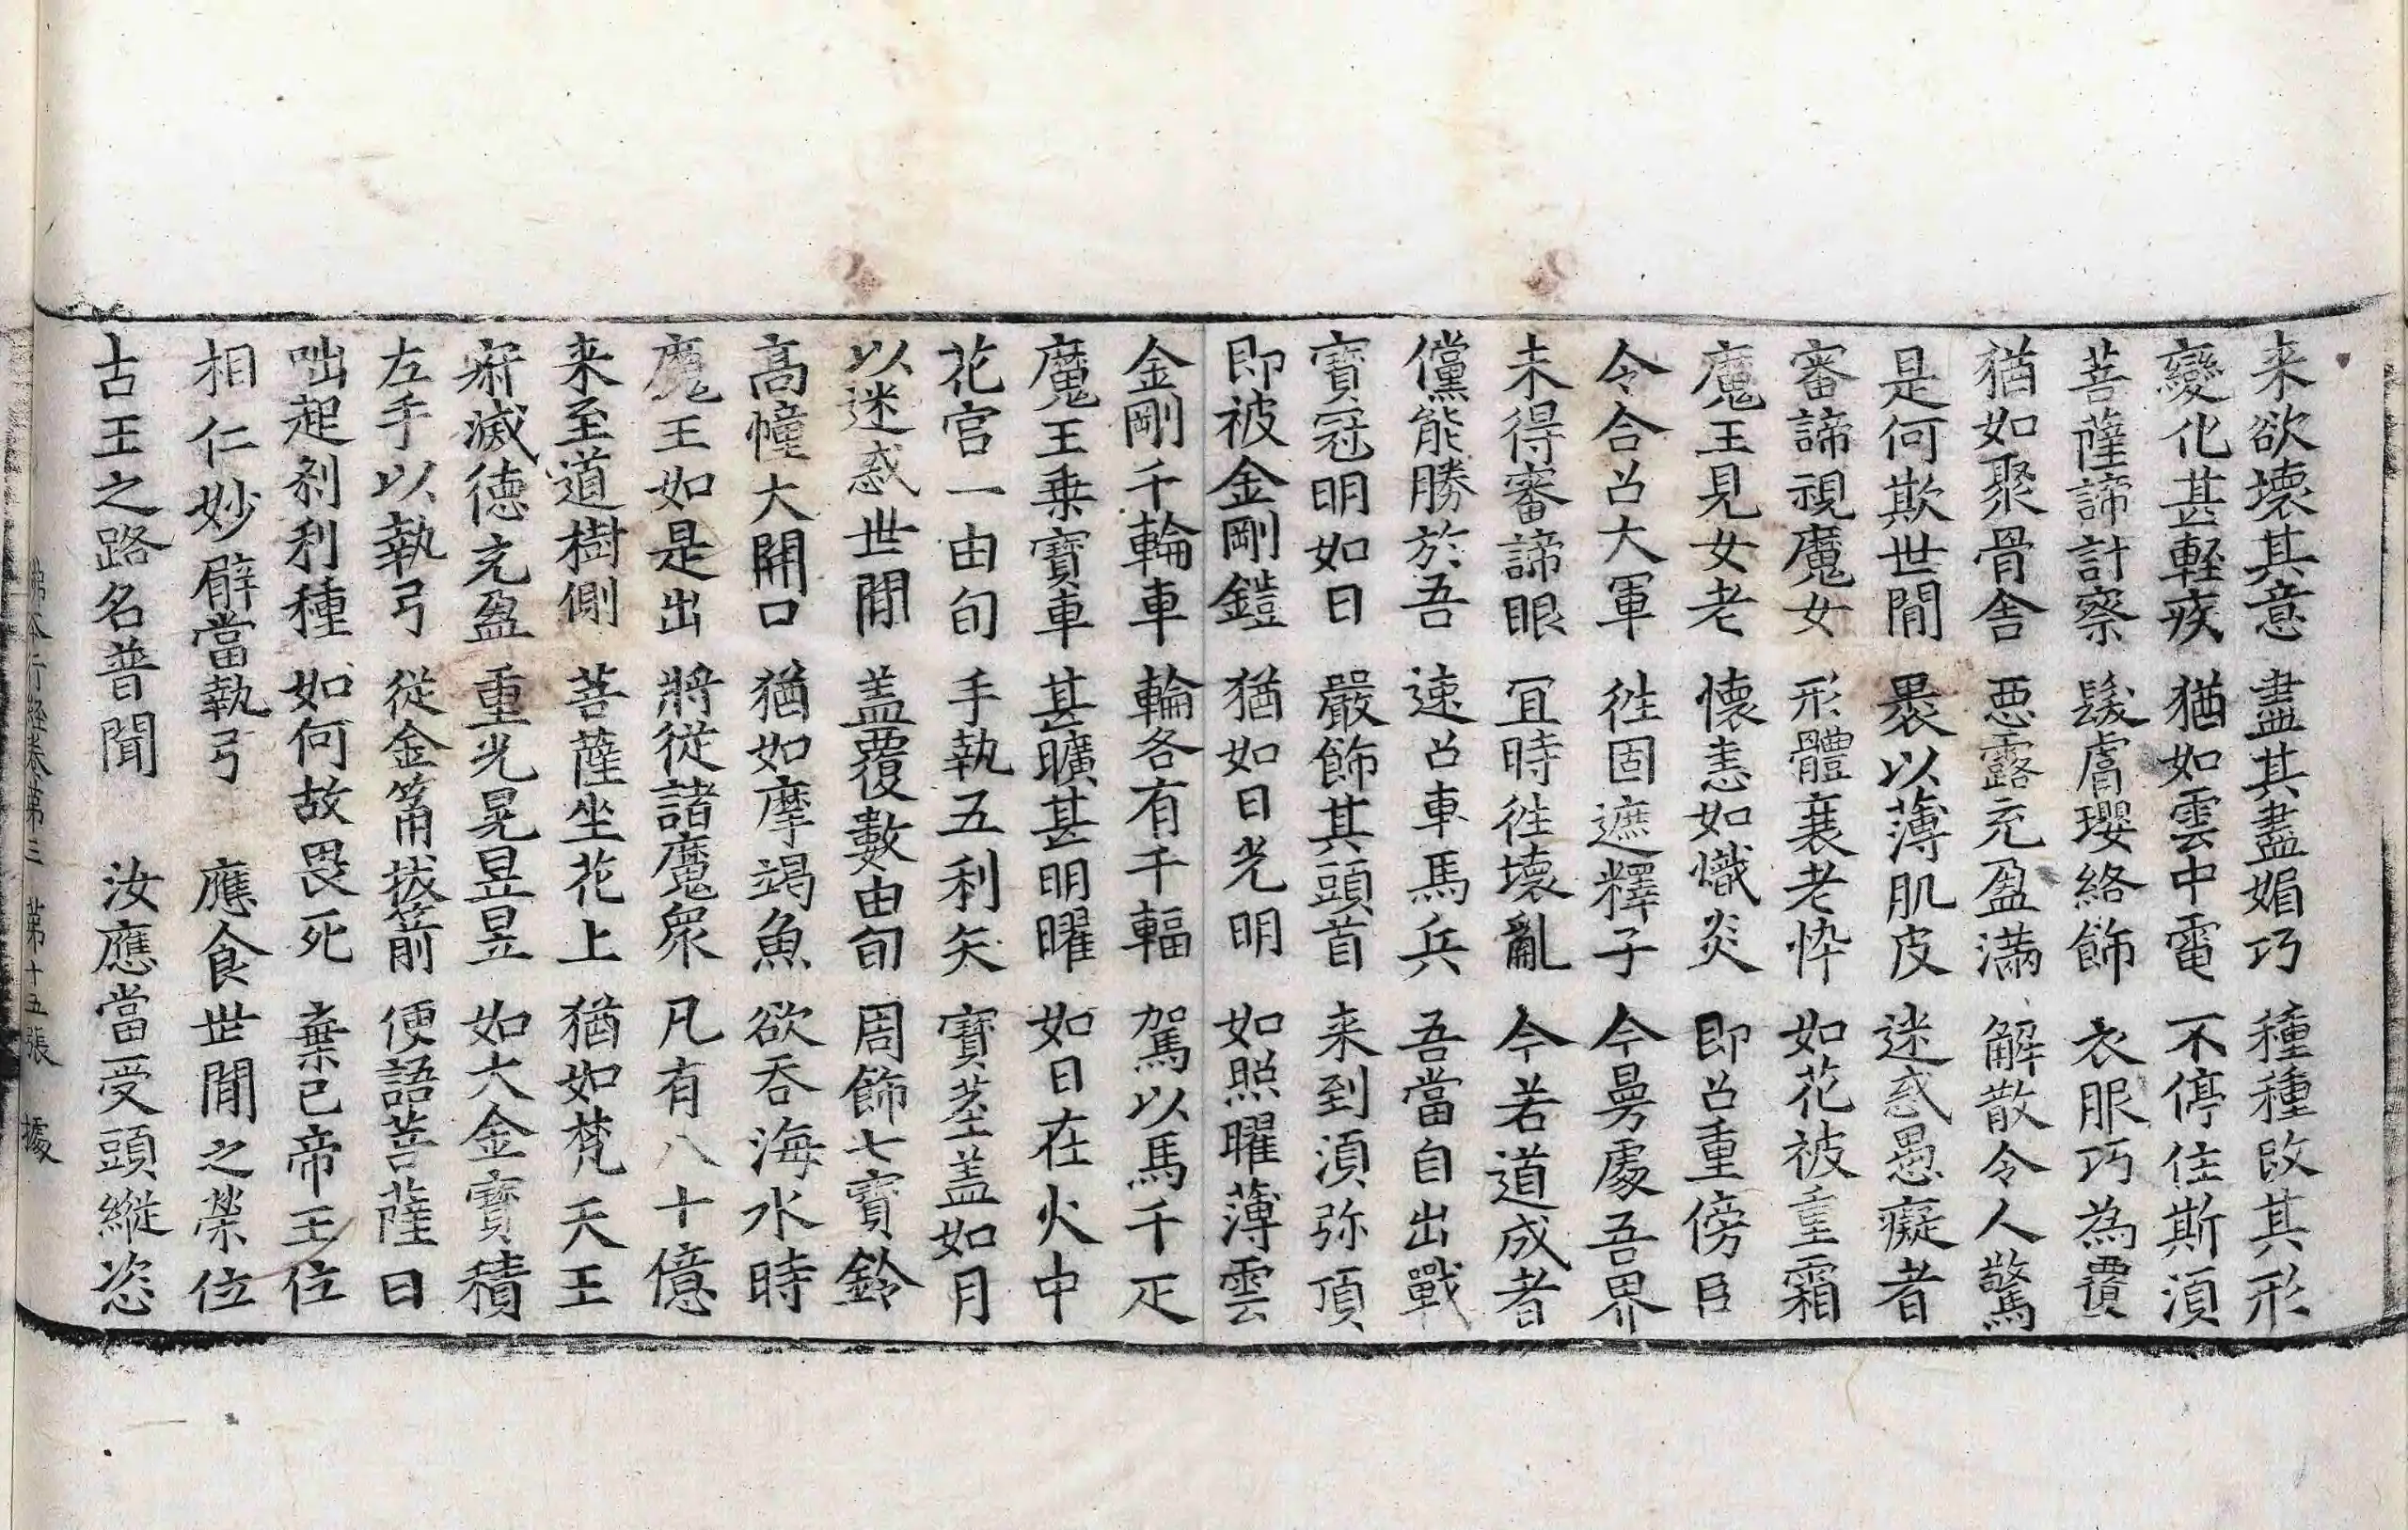 来欲壊其意　盡其盡媚巧　種種改其形
變化甚輕疾　猶如雲中電　不停住斯湏
菩薩諦計察　髮膚瓔絡飾　衣服巧為覆
猶如聚骨舎　惡露充盈滿　解散令人驚
是何欺世間　褁以薄肌皮　迷惑愚癡者
審諦視魔女　形體衰老悴　如花被重霜
魔王見女老　懷恚如熾炎　即召重傍臣
令合召大軍　徃固遮釋子　今曼處吾界
未得審諦眼　冝時徃壊亂　今若道成者
儻能勝於吾　速召車馬兵　吾當自出戰
寶冠明如日　嚴飾其頭首　来到湏弥頂
即被金剛鎧　猶如日光明　如照曜薄雲
金剛千輪車　輪各有千輻　駕以馬千疋
魔王乗寶車　甚曠甚明曜　如日在火中
花官一由旬　手執五利矢　寶莖盖如月
以迷惑世間　盖覆數由旬　周飾七寶鈴
高幢大開口　猶如摩竭魚　欲吞海水時
魔王如是出　將從諸魔衆　凡有八十億
来至道樹側　菩薩坐花上　猶如梵天王
寂滅徳充盈　重光晃昱昱　如大金寶積
左手以執弓　從金筩拔箭　便語菩薩曰
咄起刹利種　如何故畏死　棄已帝王位
相仁妙臂當執弓　應食世間之榮位
古王之路名普聞　汝應當受頭縱恣
行經卷第三　第十五張　據